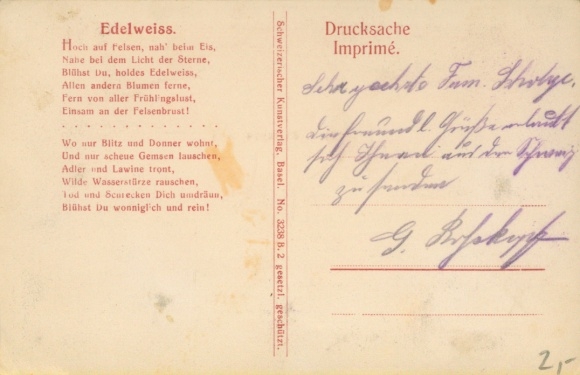 Edelweiss.
Hoch auf Felsen, nah' beim Eis,
Nahe bei dem Licht der Sterne,
Blühst Du, holdes Edelweiss,
Allen andern Blumen ferne,
Fern von aller Frühlingslust,
Einsam an der Felsenbrust!
. . . . . . . . . . . .
Wo nur Blitz und Donner wohnt,
Und nur scheue Gemsen lauschen,
Adler und Lawine tront,
Wilde Wasserstürze rauschen,
Tod und Schrecken Dich umdräun,
Blühst Du wonniglich und rein!
Schweizerischer Kunstverlag, Basel. No. 3238 B. 2 gesetzl. geschützt.
Drucksache
Imprimé.
Sehr geehrte Fam.
die freundl. Grüße erlaubt
sich Ihnen aus der Schweiz
zu senden
G.
2,-